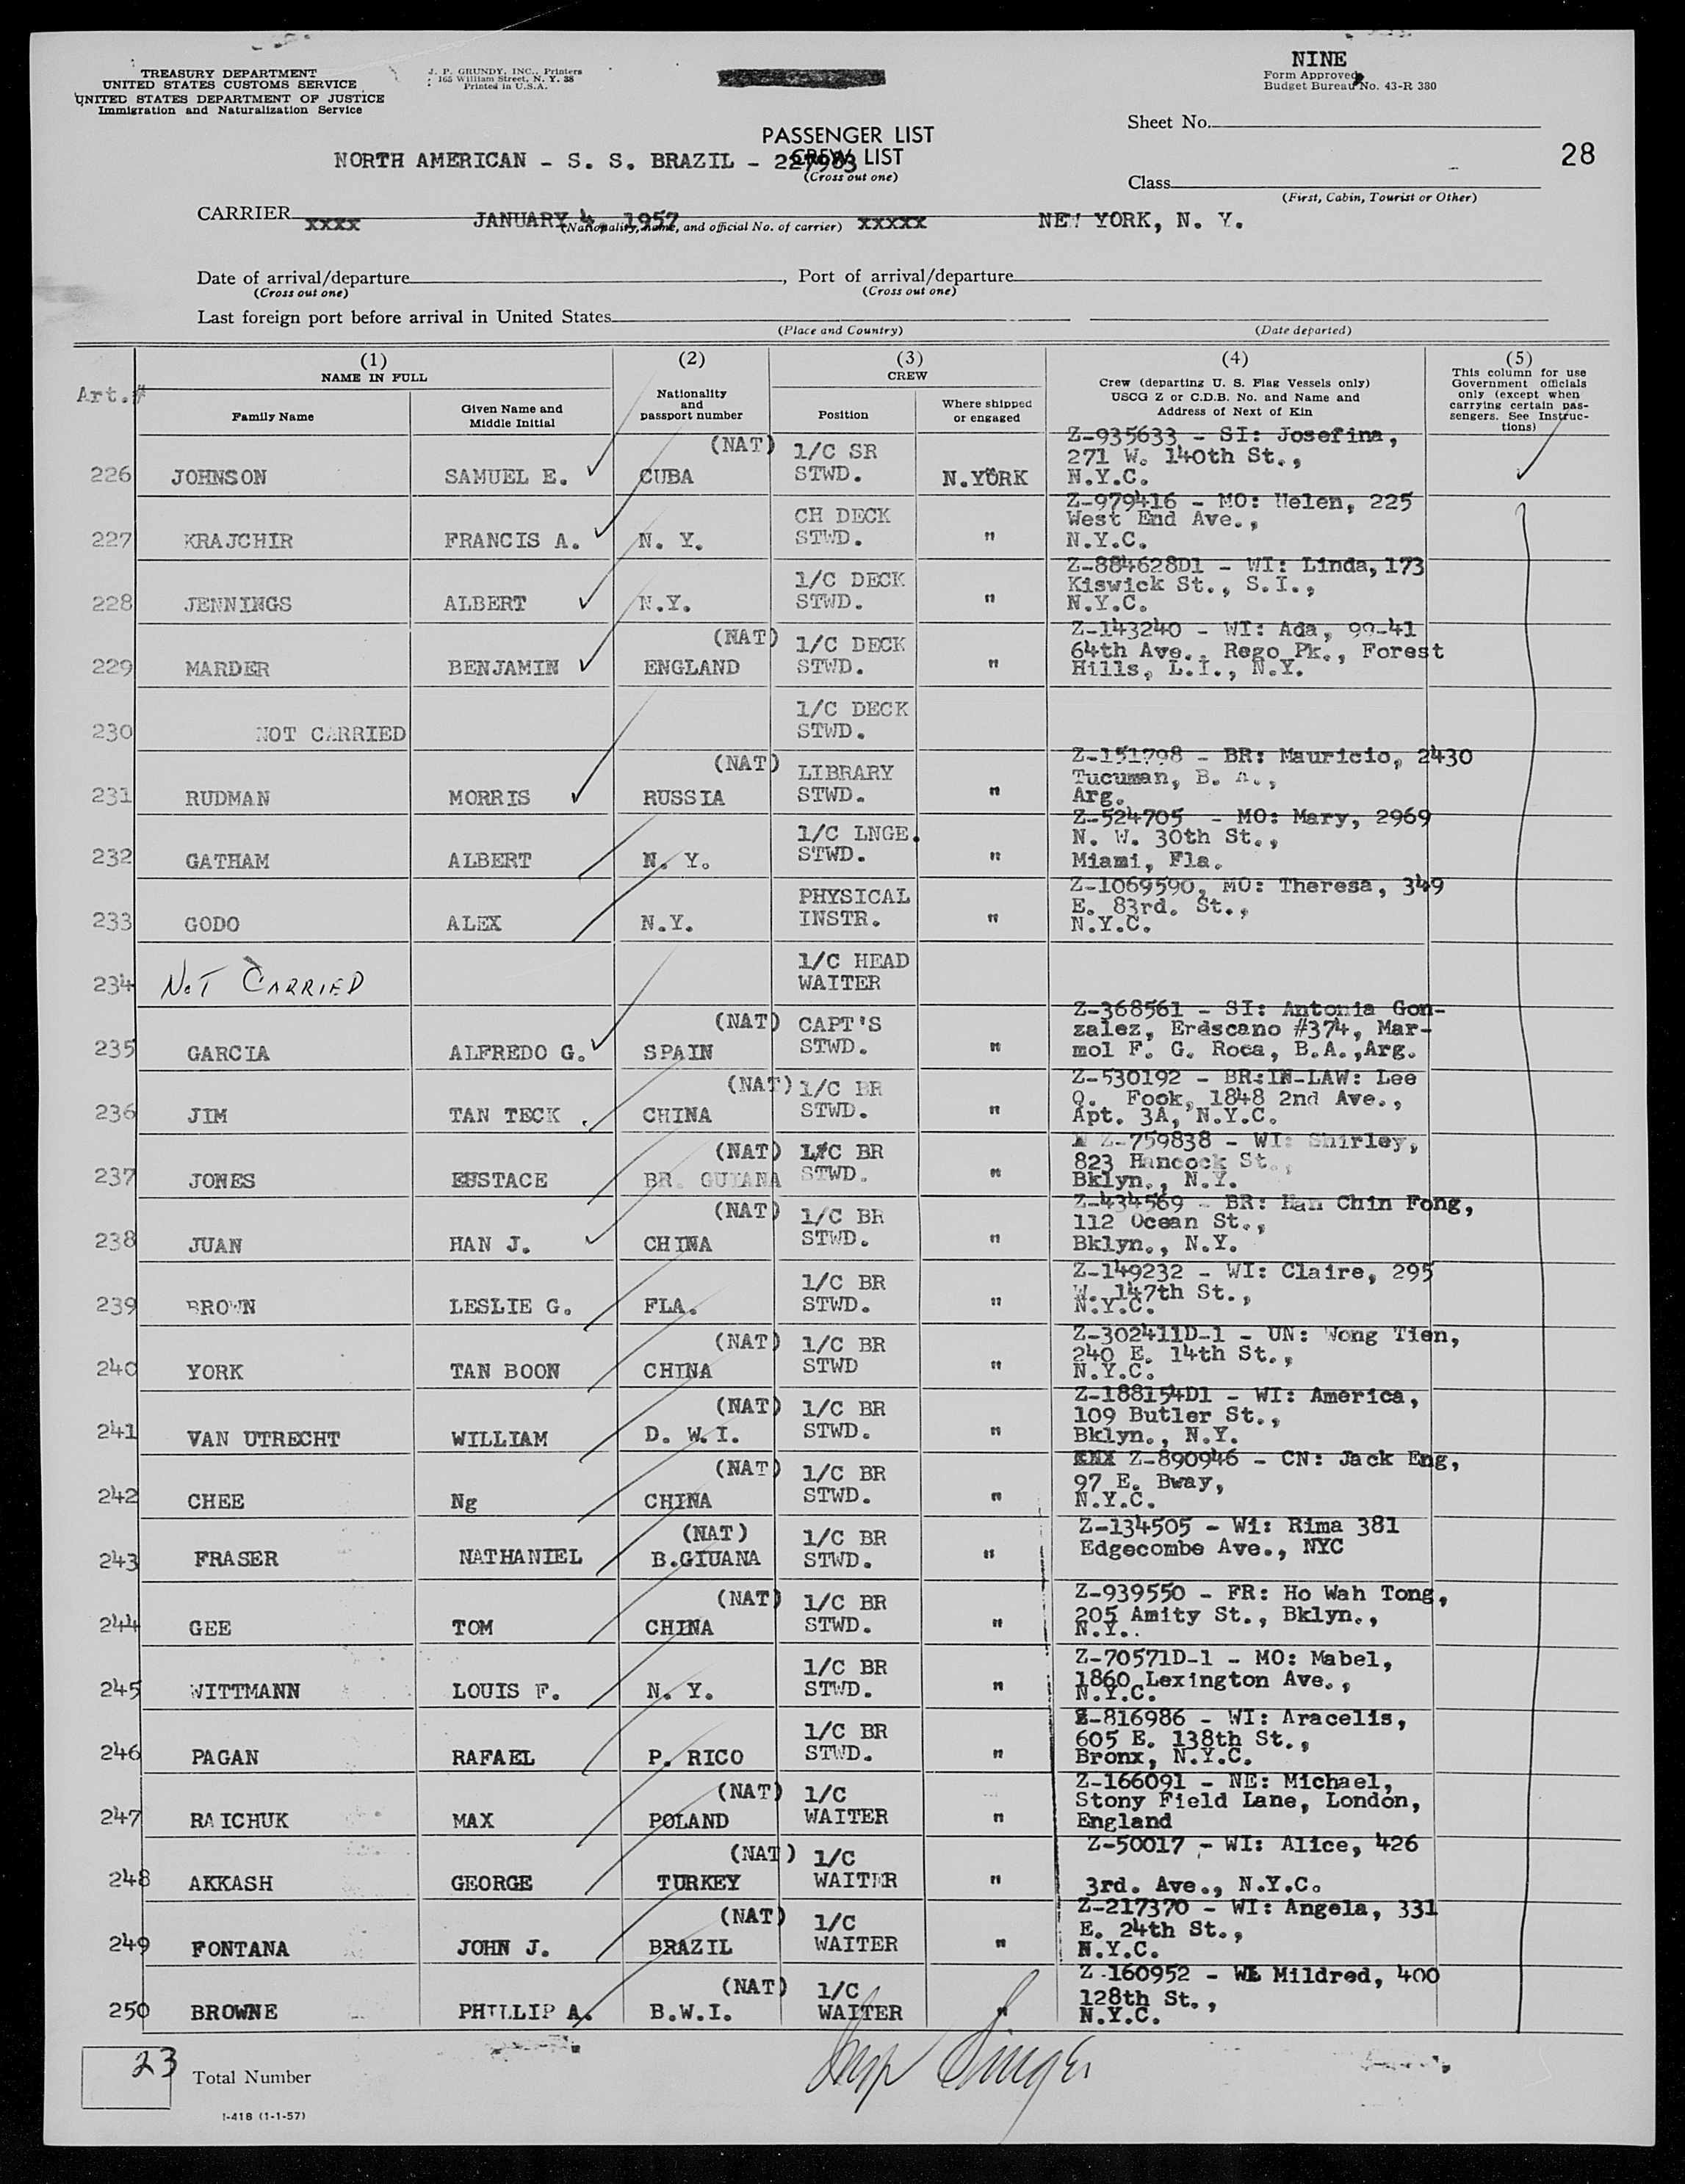 TREASURY DEPARTMENT
UNITED STATES CUSTOMS SERVICE
UNITED STATES DEPARTMENT OF JUSTICE
Immigration and Naturalization Service
J. P. GRUNDY, INC., Printers
165 William Street, N. Y. 38
Printed in U.S.A.
NINE
Form Approved
Budget Bureau No. 43-R 380
Sheet No.
28
PASSENGER LIST
CREW LIST
(Cross out one)
NORTH AMERICAN - S. S. BRAZIL - 227983
Class
(First, Cabin, Tourist or Other)
CARRIER
XXXX JANUARY 4, 1957 XXXXX NEW YORK, N. Y.
(Nationality, name, and official No. of carrier)
Date of arrival/departure , Port of arrival/departure
(Cross out one) (Cross out one)
Last foreign port before arrival in United States
(Place and Country) (Date departed)
Art.#
(1) NAME IN FULL
Family Name
Given Name and Middle Initial
(2) Nationality and passport number
(3) CREW
Position
Where shipped or engaged
(4) Crew (departing U. S. Flag Vessels only) USCG Z or C.D.B. No. and Name and Address of Next of Kin
(5) This column for use Government officials only (except when carrying certain passengers. See Instructions)
226 JOHNSON SAMUEL E. (NAT) CUBA 1/C SR STWD. N.YORK Z-935633 - SI: Josefina, 271 W. 140th St., N.Y.C.
227 KRAJCHIR FRANCIS A. N. Y. CH DECK STWD. " Z-979416 - MO: Helen, 225 West End Ave., N.Y.C.
228 JENNINGS ALBERT N.Y. 1/C DECK STWD. " Z-884628D1 - WI: Linda, 173 Kiswick St., S.I., N.Y.C.
229 MARDER BENJAMIN (NAT) ENGLAND 1/C DECK STWD. " Z-143240 - WI: Ada, 99-41 64th Ave., Rego Pk., Forest Hills, L.I., N.Y.
230 NOT CARRIED 1/C DECK STWD.
231 RUDMAN MORRIS (NAT) RUSSIA LIBRARY STWD. " Z-151798 - BR: Mauricio, 2430 Tucuman, B. A., Arg.
232 GATHAM ALBERT N. Y. 1/C LNGE. STWD. " Z-524705 - MO: Mary, 2969 N. W. 30th St., Miami, Fla.
233 GODO ALEX N.Y. PHYSICAL INSTR. " Z-1069590, MO: Theresa, 349 E. 83rd. St., N.Y.C.
234 NOT CARRIED 1/C HEAD WAITER
235 GARCIA ALFREDO G. (NAT) SPAIN CAPT'S STWD. " Z-368561 - SI: Antonia Gonzalez, Erascano #374, Marmol F. G. Roca, B.A.,Arg.
236 JIM TAN TECK (NAT) CHINA 1/C BR STWD. " Z-530192 - BR:IN-LAW: Lee Q. Fook, 1848 2nd Ave., Apt. 3A, N.Y.C.
237 JONES EUSTACE (NAT) BR. GUIANA 1/C BR STWD. " Z-759838 - WI: Shirley, 823 Hancock St., Bklyn., N.Y.
238 JUAN HAN J. (NAT) CHINA 1/C BR STWD. " Z-434569 - BR: Han Chin Fong, 112 Ocean St., Bklyn., N.Y.
239 BROWN LESLIE G. FLA. 1/C BR STWD. " Z-149232 - WI: Claire, 295 W. 147th St., N.Y.C.
240 YORK TAN BOON (NAT) CHINA 1/C BR STWD " Z-302411D-1 - UN: Wong Tien, 240 E. 14th St., N.Y.C.
241 VAN UTRECHT WILLIAM (NAT) D. W. I. 1/C BR STWD. " Z-188154D1 - WI: America, 109 Butler St., Bklyn., N.Y.
242 CHEE Ng (NAT) CHINA 1/C BR STWD. " Z-890946 - CN: Jack Eng, 97 E. Bway, N.Y.C.
243 FRASER NATHANIEL (NAT) B.GIUANA 1/C BR STWD. " Z-134505 - Wi: Rima 381 Edgecombe Ave., NYC
244 GEE TOM (NAT) CHINA 1/C BR STWD. " Z-939550 - FR: Ho Wah Tong, 205 Amity St., Bklyn., N.Y..
245 WITTMANN LOUIS F. N. Y. 1/C BR STWD. " Z-70571D-1 - MO: Mabel, 1860 Lexington Ave., N.Y.C.
246 PAGAN RAFAEL P. RICO 1/C BR STWD. " Z-816986 - WI: Aracelis, 605 E. 138th St., Bronx, N.Y.C.
247 RAICHUK MAX (NAT) POLAND 1/C WAITER " Z-166091 - NE: Michael, Stony Field Lane, London, England
248 AKKASH GEORGE (NAT) TURKEY 1/C WAITER " Z-50017 - WI: Alice, 426 3rd. Ave., N.Y.C.
249 FONTANA JOHN J. (NAT) BRAZIL 1/C WAITER " Z-217370 - WI: Angela, 331 E. 24th St., N.Y.C.
250 BROWNE PHILLIP A. (NAT) B.W.I. 1/C WAITER " Z-160952 - WI Mildred, 400 128th St., N.Y.C.
23 Total Number
I-418 (1-1-57)
Insp Singer